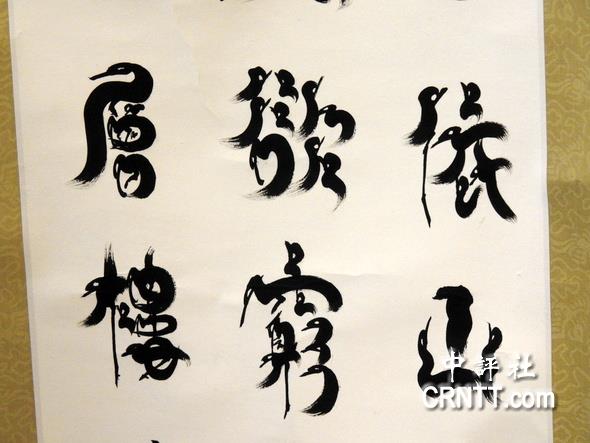 依山
欲窮
層樓
中評社
CRNTT.com